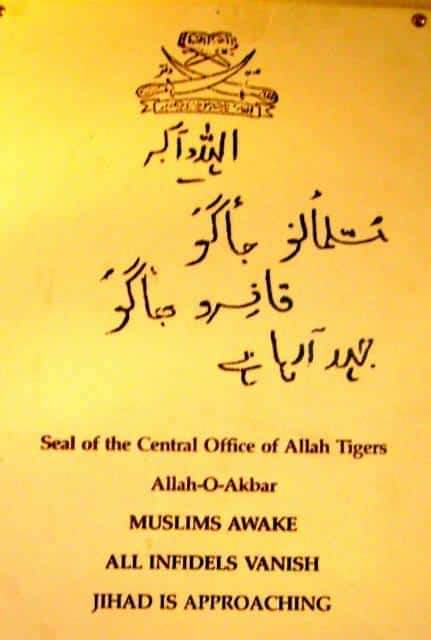 اللہ و اکبر
مسلمانو جاگو
قافرو بھاگو
جہد آ رہا ہے
Seal of the Central Office of Allah Tigers
Allah-O-Akbar
MUSLIMS AWAKE
ALL INFIDELS VANISH
JIHAD IS APPROACHING